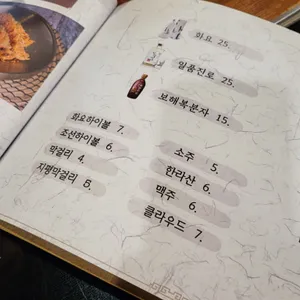 화요 25.
일품진로 25.
보해복분자 15.
화요하이볼 7.
조선하이볼 6.
막걸리 4.
지평막걸리 8.
소주 5.
한라산 6.
맥주 6.
클라우드 7.